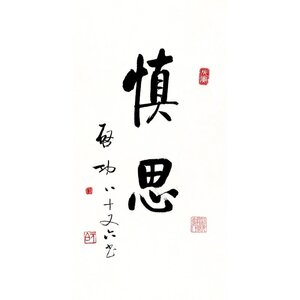 慎思
啟功八十又六書